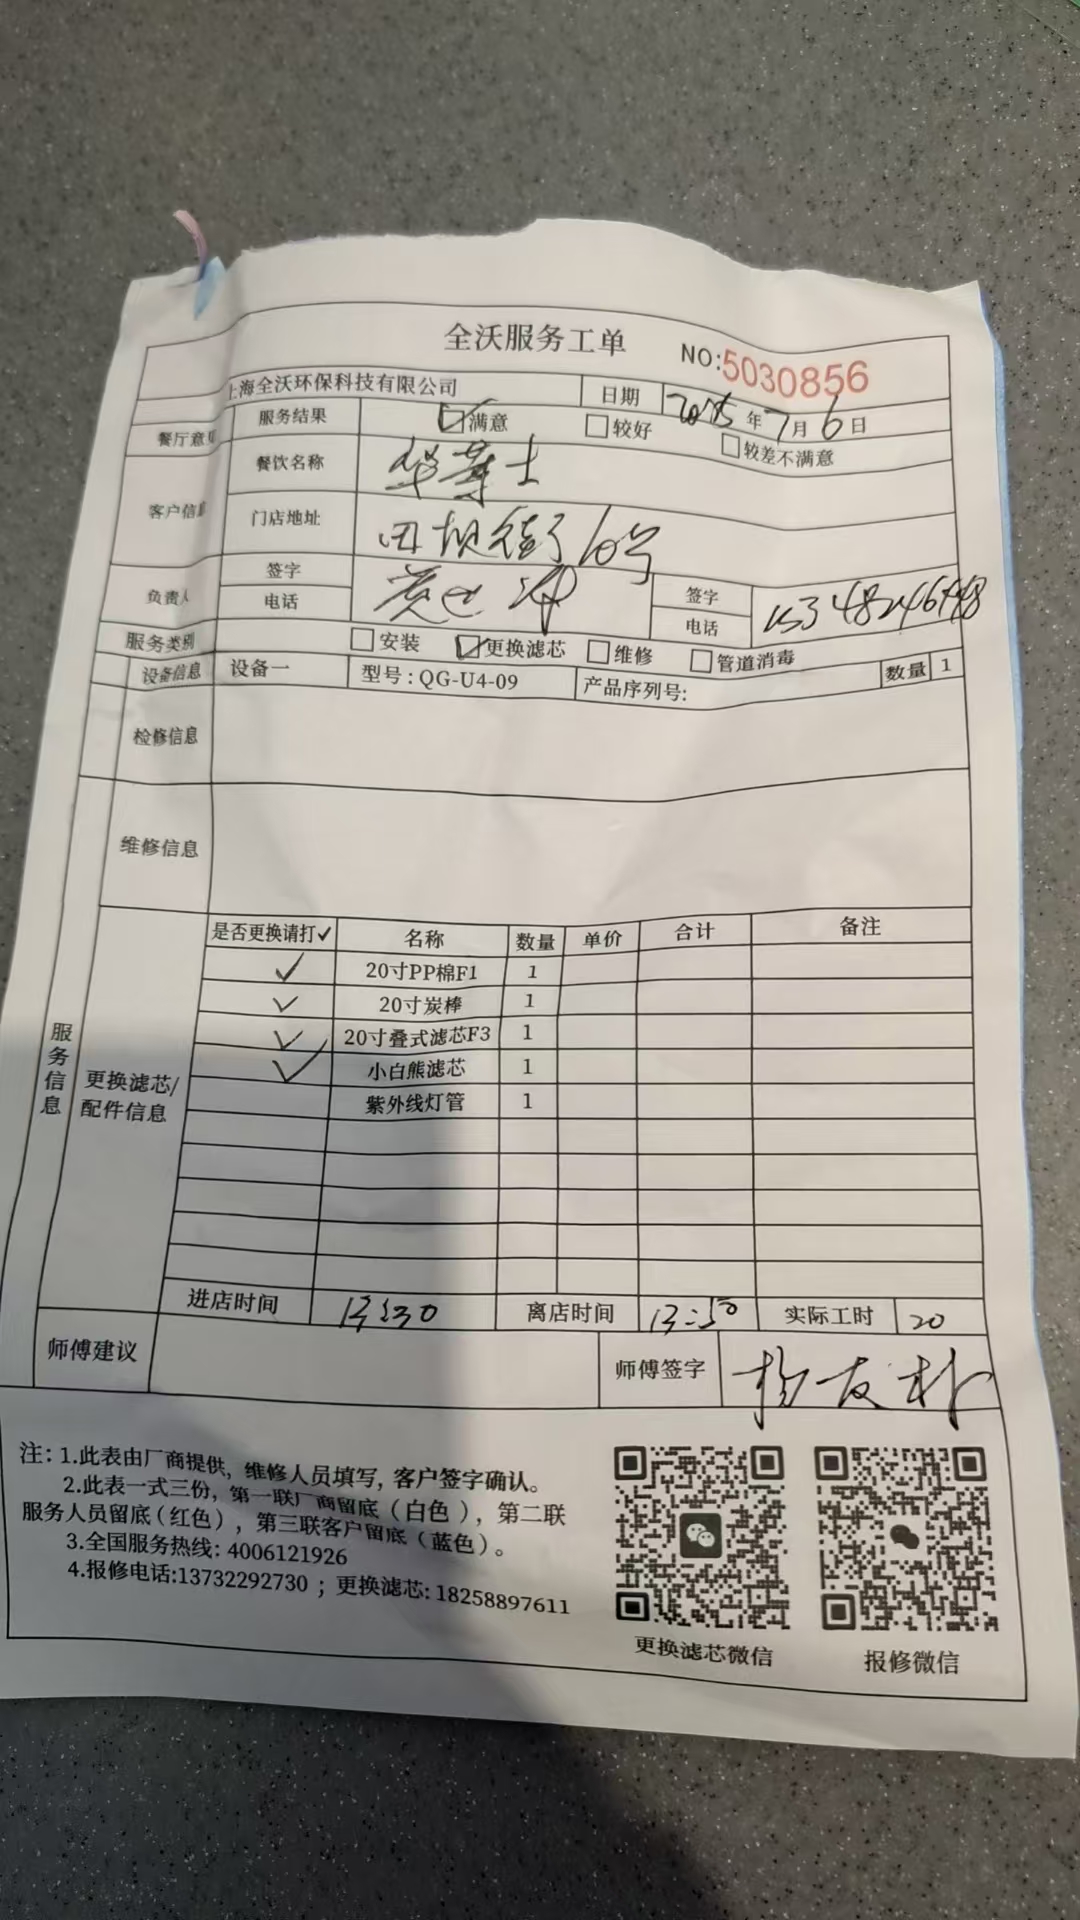 全沃服务工单 NO:5030856
上海全沃环保科技有限公司 日期 2025年7月6日
餐厅意见 服务结果 ☑满意 □较好 □较差不满意
客户信息 餐饮名称 华莱士
门店地址 田坝街16号
负责人 签字 签字
电话 电话 15348246448
服务类别 □安装 ☑更换滤芯 □维修 □管道消毒
设备信息 设备一 型号:QG-U4-09 产品序列号: 数量 1
检修信息
维修信息
服务信息
更换滤芯/
配件信息
是否更换请打✓ 名称 数量 单价 合计 备注
✓ 20寸PP棉F1 1
✓ 20寸炭棒 1
✓ 20寸叠式滤芯F3 1
✓ 小白熊滤芯 1
紫外线灯管 1
进店时间 13:30 离店时间 13:50 实际工时 20
师傅建议 师傅签字 杨友
注: 1.此表由厂商提供, 维修人员填写, 客户签字确认。
2.此表一式三份, 第一联厂商留底（白色）, 第二联
服务人员留底(红色), 第三联客户留底（蓝色）。
3.全国服务热线: 4006121926
4.报修电话:13732292730 ; 更换滤芯: 18258897611
更换滤芯微信 报修微信